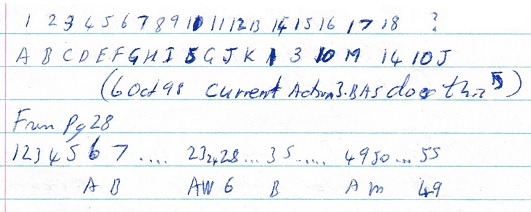 1 2 3 4 5 6 7 8 9 10 11 12 13 14 15 16 17 18 ?
A B C D E F G H I 5 G J K 1 3 10 M 14 10 J
(6 Oct 98 Current Action3.BAS does this)
From Pg 28
1 2 3 4 5 6 7 .... 23 28 ... 35 .... 49 50 ... 55
A B AW 6 B A m 49